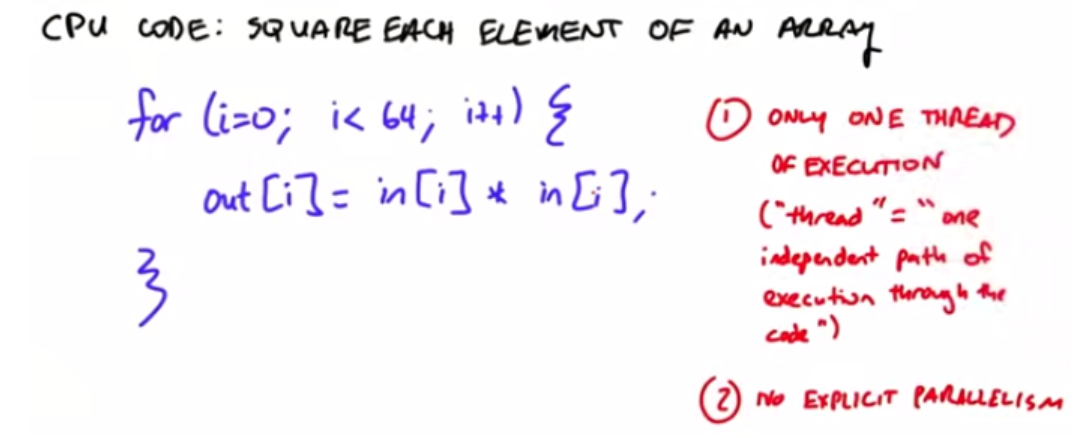 CPU CODE: SQUARE EACH ELEMENT OF AN ARRAY
for (i=0; i< 64; i++) {
out [i] = in [i] * in [i];
}
① ONLY ONE THREAD
OF EXECUTION
("thread" = "one
independent path of
execution through the
code")
② NO EXPLICIT PARALLELISM